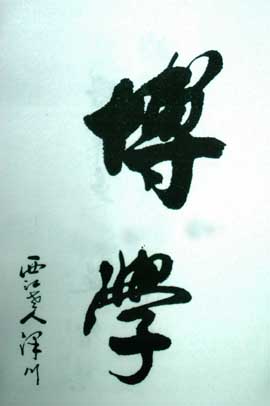 博學
西江老人澤川